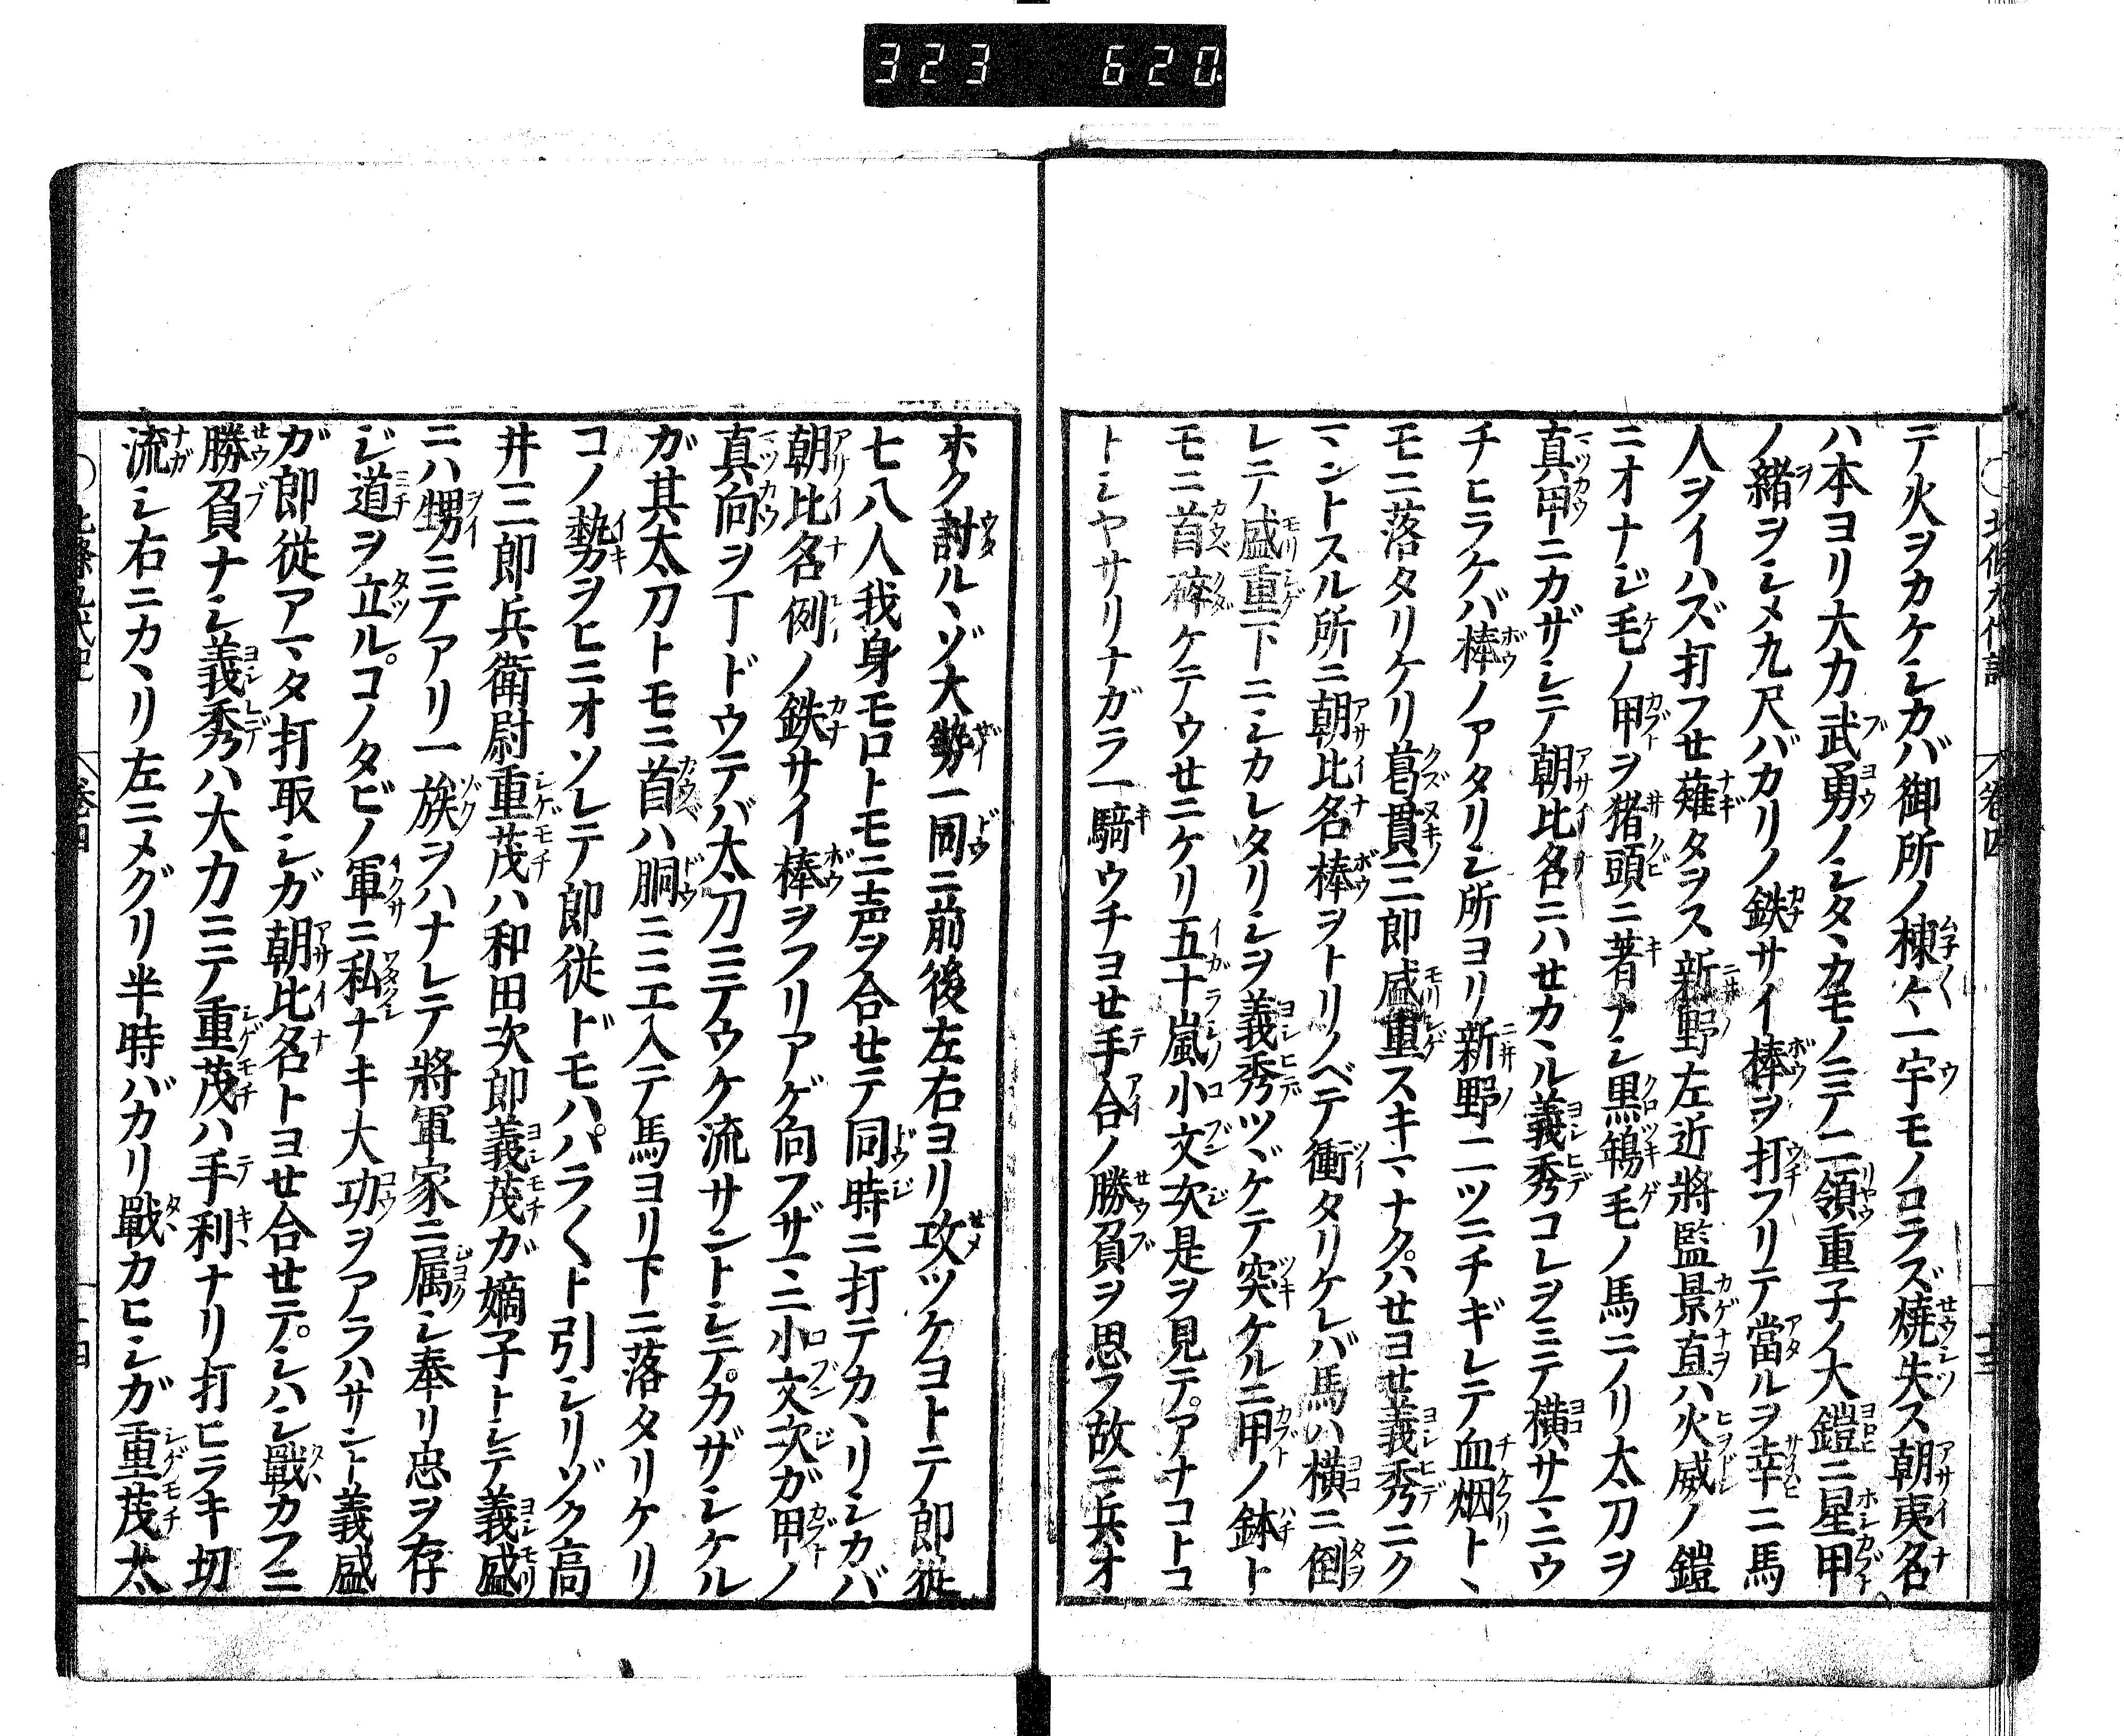 323 620.
テ火ヲカケシカバ御所ノ棟々一宇モノコラズ焼失ス朝夷名
ハ本ヨリ大力武勇ノシタヽカモノニテ二領重子ノ大鎧ニ星甲
ノ緒ヲシメ九尺バカリノ鉄サイ棒ヲ打フリテ當ルヲ幸ニ馬
人ヲイハズ打フせ薙タヲス新野左近將監景直ハ火威ノ鎧
ニオナジ毛ノ甲ヲ猪頭ニ著ナシ黒鴾毛ノ馬ニノリ太刀ヲ
真甲ニカザシテ朝比名ニハせカヽル義秀コレヲミテ横サマニウ
チヒラケバ棒ノアタリシ所ヨリ新野二ツニチギレテ血烟トヽ
モニ落タリケリ葛貫三郎盛重スキマナクハせヨせ義秀ニク
マントスル所ニ朝比名棒ヲトリノベテ衝タリケレバ馬ハ横ニ倒
レテ盛重下ニシカレタリシヲ義秀ツヾケテ突ケルニ甲ノ鉢ト
モニ首碎ケテウせニケリ五十嵐小文次是ヲ見テアナコトコ
トシヤサリナガラ一騎ウチヨせ手合ノ勝負ヲ思フ故ニ兵オ
ホク討ルヽゾ大勢一同ニ前後左右ヨリ攻ツケヨトテ郎従
七八人我身モロトモニ声ヲ合せテ同時ニ打テカヽリシカバ
朝比名例ノ鉄サイ棒ヲフリアゲ向フザマニ小文次ガ甲ノ
真向ヲ丁ドウテバ太刀ニテウケ流サントシテカザシケル
ガ其太刀トモニ首ハ胴ニニエ入テ馬ヨリ下ニ落タリケリ
コノ勢ヲヒニオソレテ郎従ドモハパラ〱ト引シリゾク高
井三郎兵衛尉重茂ハ和田次郎義茂ガ嫡子トシテ義盛
ニハ甥ニテアリ一族ヲハナレテ將軍家ニ属シ奉リ忠ヲ存
ジ道ヲ立ルコノタビノ軍ニ私ナキ大功ヲアラハサント義盛
ガ郎従アマタ打取シガ朝比名トヨせ合せテシハシ戰カフニ
勝負ナシ義秀ハ大力ニテ重茂ハ手利ナリ打ヒラキ切
流シ右ニカヽリ左ニメグリ半時バカリ戰カヒシガ重茂太